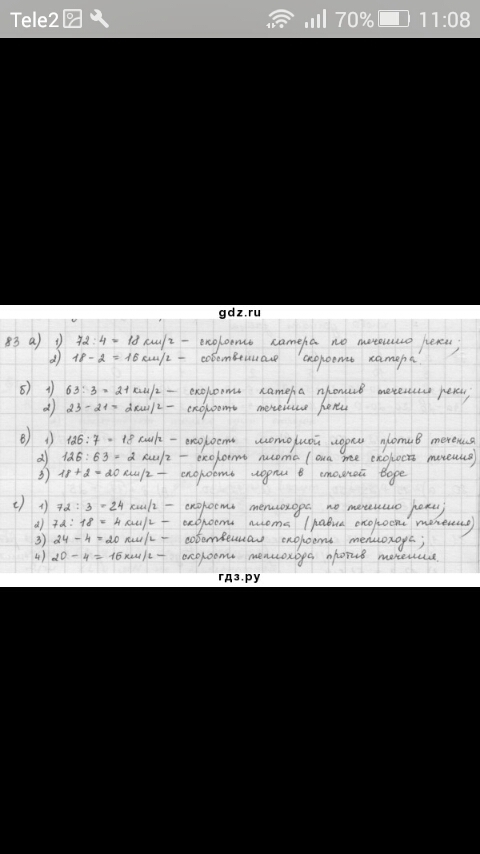 Tele2 70% 11:08
gdz.ru
83 а) 1) 72:4 = 18 км/ч – скорость катера по течению реки;
2) 18 - 2 = 16 км/ч – собственная скорость катера
б) 1) 63:3 = 21 км/ч – скорость катера против течения реки;
2) 23 - 21 = 2 км/ч – скорость течения реки
в) 1) 126:7 = 18 км/ч – скорость моторной лодки против течения
2) 126:63 = 2 км/ч – скорость плота (она же скорость течения)
3) 18 + 2 = 20 км/ч – скорость лодки в стоячей воде
г) 1) 72 : 3 = 24 км/ч – скорость теплохода по течению реки;
2) 72:18 = 4 км/ч – скорость плота (равна скорости течения)
3) 24 - 4 = 20 км/ч – собственная скорость теплохода;
4) 20 - 4 = 16 км/ч – скорость теплохода против течения.
гдз.ру